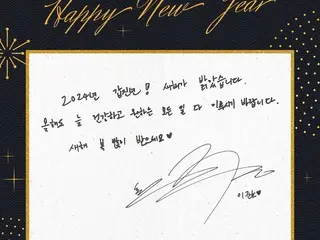 Happy New Year
2024년 갑진년 용 새해가 밝았습니다.
올해도 늘 건강하고 원하는 모든 일 다 이루시길 바랍니다.
새해 복 많이 받으세요♥